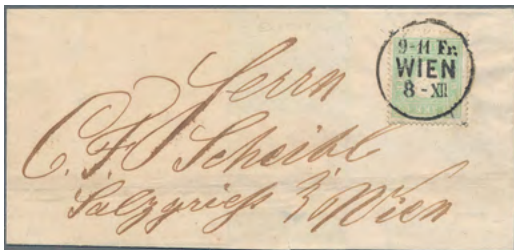 9-11 Fr.
WIEN
8 - XII
Herrn
C. F. Scheibl
Salzgrieß 3.
Wien